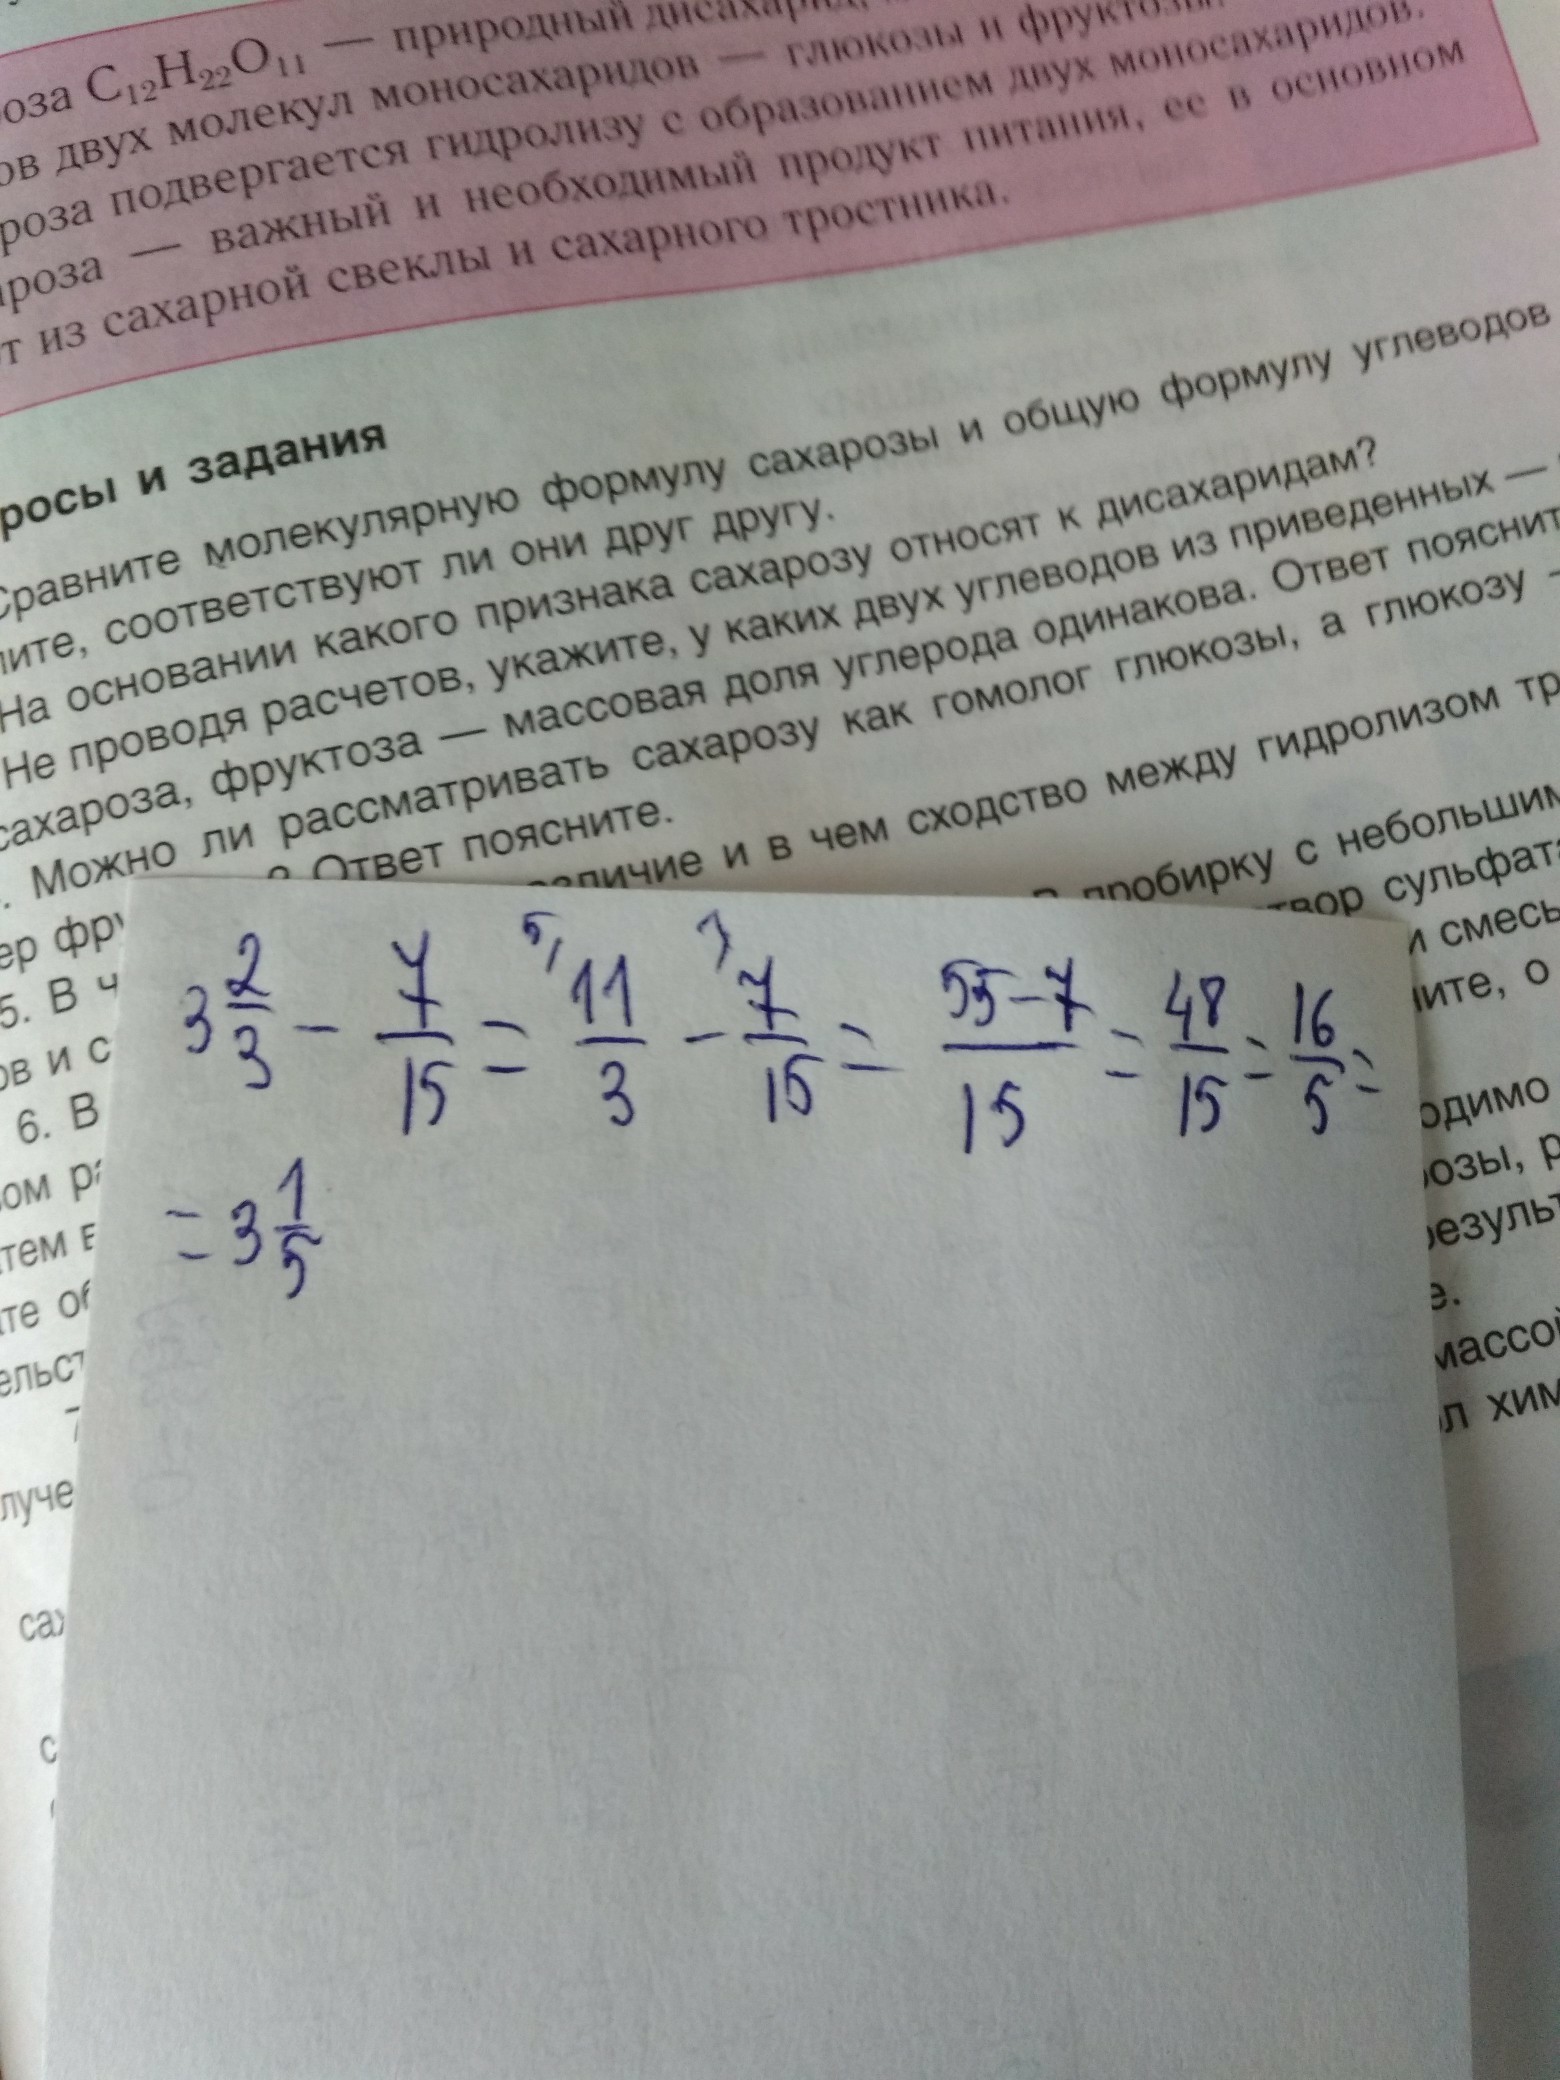 оза C₁₂H₂₂O₁₁ — природный дисахарид,
ов двух молекул моносахаридов — глюкозы и фруктозы.
роза подвергается гидролизу с образованием двух моносахаридов.
роза — важный и необходимый продукт питания, ее в основном
т из сахарной свеклы и сахарного тростника.
росы и задания
Сравните молекулярную формулу сахарозы и общую формулу углеводов
ите, соответствуют ли они друг другу.
На основании какого признака сахарозу относят к дисахаридам?
Не проводя расчетов, укажите, у каких двух углеводов из приведенных —
сахароза, фруктоза — массовая доля углерода одинакова. Ответ пояснит
. Можно ли рассматривать сахарозу как гомолог глюкозы, а глюкозу —
ер фру ? Ответ поясните.
5. В ч азличие и в чем сходство между гидролизом тр
ов и с
6. В пробирку с небольшим
ом ра твор сульфата
тем в и смесь
те об ите, о
ельст
7 одимо
луче озы, р
результ
е.
сах массой
л хим
с
3 2/3 − 7/15 = 5/ 11/3 − 7/15 = 55−7/15 = 48/15 = 16/5 =
= 3 1/5